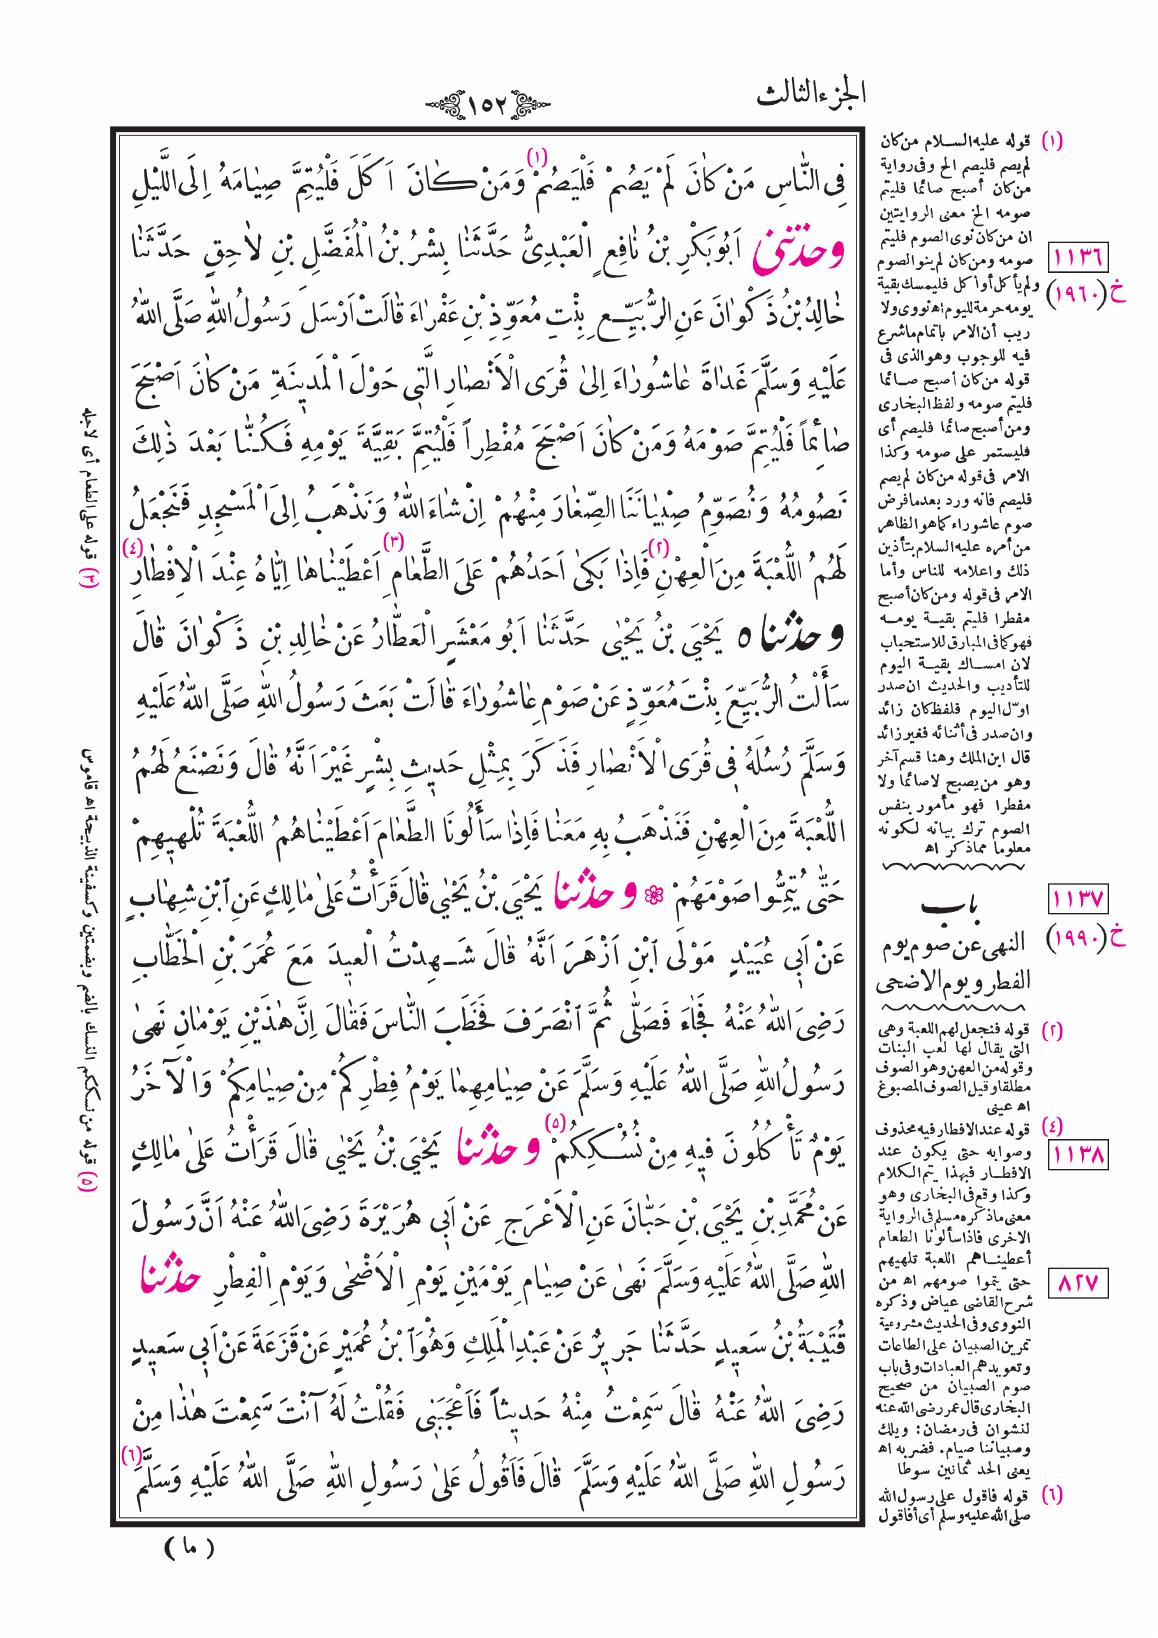 الجزء الثالث
١٥٢
فِى النَّاسِ مَنْ كَانَ لَمْ يَصُمْ فَلْيَصُمْ (١) وَمَنْ كَانَ اَكَلَ فَلْيُتِمَّ صِيَامَهُ اِلَى اللَّيْلِ
وحدثنى اَبُوبَكْرِ بْنُ نَافِعٍ الْعَبْدِىُّ حَدَّثَنَا بِشْرُ بْنُ الْمُفَضَّلِ بْنِ لَاحِقٍ حَدَّثَنَا
خَالِدُ بْنُ ذَكْوَانَ عَنِ الرُّبَيِّعِ بِنْتِ مُعَوِّذِ بْنِ عَفْرَاءَ قَالَتْ اَرْسَلَ رَسُولُ اللّٰهِ صَلَّى اللّٰهُ
عَلَيْهِ وَسَلَّمَ غَدَاةَ عَاشُورَاءَ اِلىٰ قُرَى الْاَنْصَارِ الَّتِى حَوْلَ الْمَدِينَةِ مَنْ كَانَ اَصْبَحَ
صَائِماً فَلْيُتِمَّ صَوْمَهُ وَمَنْ كَانَ اَصْبَحَ مُفْطِراً فَلْيُتِمَّ بَقِيَّةَ يَوْمِهِ فَكُنَّا بَعْدَ ذٰلِكَ
نَصُومُهُ وَنُصَوِّمُ صِبْيَانَنَا الصِّغَارَ مِنْهُمْ اِنْ شَاءَ اللّٰهُ وَنَذْهَبُ اِلَى الْمَسْجِدِ فَنَجْعَلُ
لَهُمُ اللُّعْبَةَ مِنَ الْعِهْنِ (٢) فَاِذَا بَكىٰ اَحَدُهُمْ عَلَى الطَّعَامِ (٣) اَعْطَيْنَاهَا اِيَّاهُ عِنْدَ الْاِفْطَارِ (٤)
وحدثناه يَحْيَى بْنُ يَحْيٰى حَدَّثَنَا اَبُو مَعْشَرٍ الْعَطَّارُ عَنْ خَالِدِ بْنِ ذَكْوَانَ قَالَ
سَأَلْتُ الرُّبَيِّعَ بِنْتَ مُعَوِّذٍ عَنْ صَوْمِ عَاشُورَاءَ قَالَتْ بَعَثَ رَسُولُ اللّٰهِ صَلَّى اللّٰهُ عَلَيْهِ
وَسَلَّمَ رُسُلَهُ فِى قُرَى الْاَنْصَارِ فَذَكَرَ بِمِثْلِ حَدِيثِ بِشْرٍ غَيْرَ اَنَّهُ قَالَ وَنَصْنَعُ لَهُمُ
اللُّعْبَةَ مِنَ الْعِهْنِ فَنَذْهَبُ بِهِ مَعَنَا فَاِذَا سَأَلُونَا الطَّعَامَ اَعْطَيْنَاهُمُ اللُّعْبَةَ تُلْهِيهِمْ
حَتّٰى يُتِمُّوا صَوْمَهُمْ ۞ وحدثنا يَحْيَى بْنُ يَحْيٰى قَالَ قَرَأْتُ عَلىٰ مَالِكٍ عَنِ ابْنِ شِهَابٍ
عَنْ اَبِى عُبَيْدٍ مَوْلَى ابْنِ اَزْهَرَ اَنَّهُ قَالَ شَهِدْتُ الْعِيدَ مَعَ عُمَرَ بْنِ الْخَطَّابِ
رَضِىَ اللّٰهُ عَنْهُ فَجَاءَ فَصَلّٰى ثُمَّ انْصَرَفَ فَخَطَبَ النَّاسَ فَقَالَ اِنَّ هٰذَيْنِ يَوْمَانِ نَهىٰ
رَسُولُ اللّٰهِ صَلَّى اللّٰهُ عَلَيْهِ وَسَلَّمَ عَنْ صِيَامِهِمَا يَوْمُ فِطْرِكُمْ مِنْ صِيَامِكُمْ وَالْآخَرُ
يَوْمٌ تَأْكُلُونَ فِيهِ مِنْ نُسُكِكُمْ (٥) وحدثنا يَحْيَى بْنُ يَحْيٰى قَالَ قَرَأْتُ عَلىٰ مَالِكٍ
عَنْ مُحَمَّدِ بْنِ يَحْيَى بْنِ حَبَّانَ عَنِ الْاَعْرَجِ عَنْ اَبِى هُرَيْرَةَ رَضِىَ اللّٰهُ عَنْهُ اَنَّ رَسُولَ
اللّٰهِ صَلَّى اللّٰهُ عَلَيْهِ وَسَلَّمَ نَهىٰ عَنْ صِيَامِ يَوْمَيْنِ يَوْمِ الْاَضْحٰى وَيَوْمِ الْفِطْرِ حدثنا
قُتَيْبَةُ بْنُ سَعِيدٍ حَدَّثَنَا جَرِيرٌ عَنْ عَبْدِ الْمَلِكِ وَهُوَ ابْنُ عُمَيْرٍ عَنْ قَزَعَةَ عَنْ اَبِى سَعِيدٍ
رَضِىَ اللّٰهُ عَنْهُ قَالَ سَمِعْتُ مِنْهُ حَدِيثاً فَاَعْجَبَنِى فَقُلْتُ لَهُ آنْتَ سَمِعْتَ هٰذَا مِنْ
رَسُولِ اللّٰهِ صَلَّى اللّٰهُ عَلَيْهِ وَسَلَّمَ قَالَ فَاَقُولُ عَلىٰ رَسُولِ اللّٰهِ صَلَّى اللّٰهُ عَلَيْهِ وَسَلَّمَ (٦)
( ما )
(١) قوله عليه السلام من كان
لم يصم فليصم الخ وفى رواية
من كان أصبح صائما فليتم
صومه الخ معنى الروايتين
ان من كان نوى الصوم فليتم
صومه ومن كان لم ينو الصوم
ولم يأكل أو أكل فليمسك بقية
يومه حرمة لليوم اه نووى ولا
ريب أن الامر باتمام ماشرع
فيه للوجوب وهو الذى فى
قوله من كان أصبح صائما
فليتم صومه ولفظ البخارى
ومن أصبح صائما فليصم أى
فليستمر على صومه وكذا
الامر فى قوله من كان لم يصم
فليصم فانه ورد بعد ما فرض
صوم عاشوراء كما هو الظاهر
من أمره عليه السلام بتأذين
ذلك واعلامه للناس وأما
الامر فى قوله ومن كان أصبح
مفطرا فليتم بقية يومه
فهو كما فى المبارق للاستحباب
لان امساك بقية اليوم
للتأديب والحديث ان صدر
اوّل اليوم فلفظ كان زائد
وان صدر فى أثنائه فغير زائد
قال ابن الملك وهنا قسم آخر
وهو من يصبح لا صائما ولا
مفطرا فهو مأمور بنفس
الصوم ترك بيانه لكونه
معلوما مما ذكر اه
باب
النهى عن صوم يوم
الفطر ويوم الاضحى
(٢) قوله فنجعل لهم اللعبة وهى
التى يقال لها لعب البنات
وقوله من العهن وهو الصوف
مطلقا وقيل الصوف المصبوغ
اه عينى
(٤) قوله عند الافطار فيه محذوف
وصوابه حتى يكون عند
الافطار فبهذا يتم الكلام
وكذا وقع فى البخارى وهو
معنى ماذكره مسلم فى الرواية
الاخرى فاذا سألونا الطعام
أعطيناهم اللعبة تلهيهم
حتى يتموا صومهم اه من
شرح القاضى عياض وذكره
النووى وفى الحديث مشروعية
تمرين الصبيان على الطاعات
وتعويدهم العبادات وفى باب
صوم الصبيان من صحيح
البخارى قال عمر رضى الله عنه
لنشوان فى رمضان: ويلك
وصبياننا صيام. فضربه اه
يعنى الحد ثمانين سوطا
(٦) قوله فاقول على رسول الله
صلى الله عليه وسلم أى أفاقول
١١٣٦
خ (١٩٦٠)
١١٣٧
خ (١٩٩٠)
١١٣٨
٨٢٧
(٣) قوله على الطعام أى لاجله
(٥) قوله من نسككم النسك بالضم وبضمتين وكسفينة الذبيحة اه قاموس